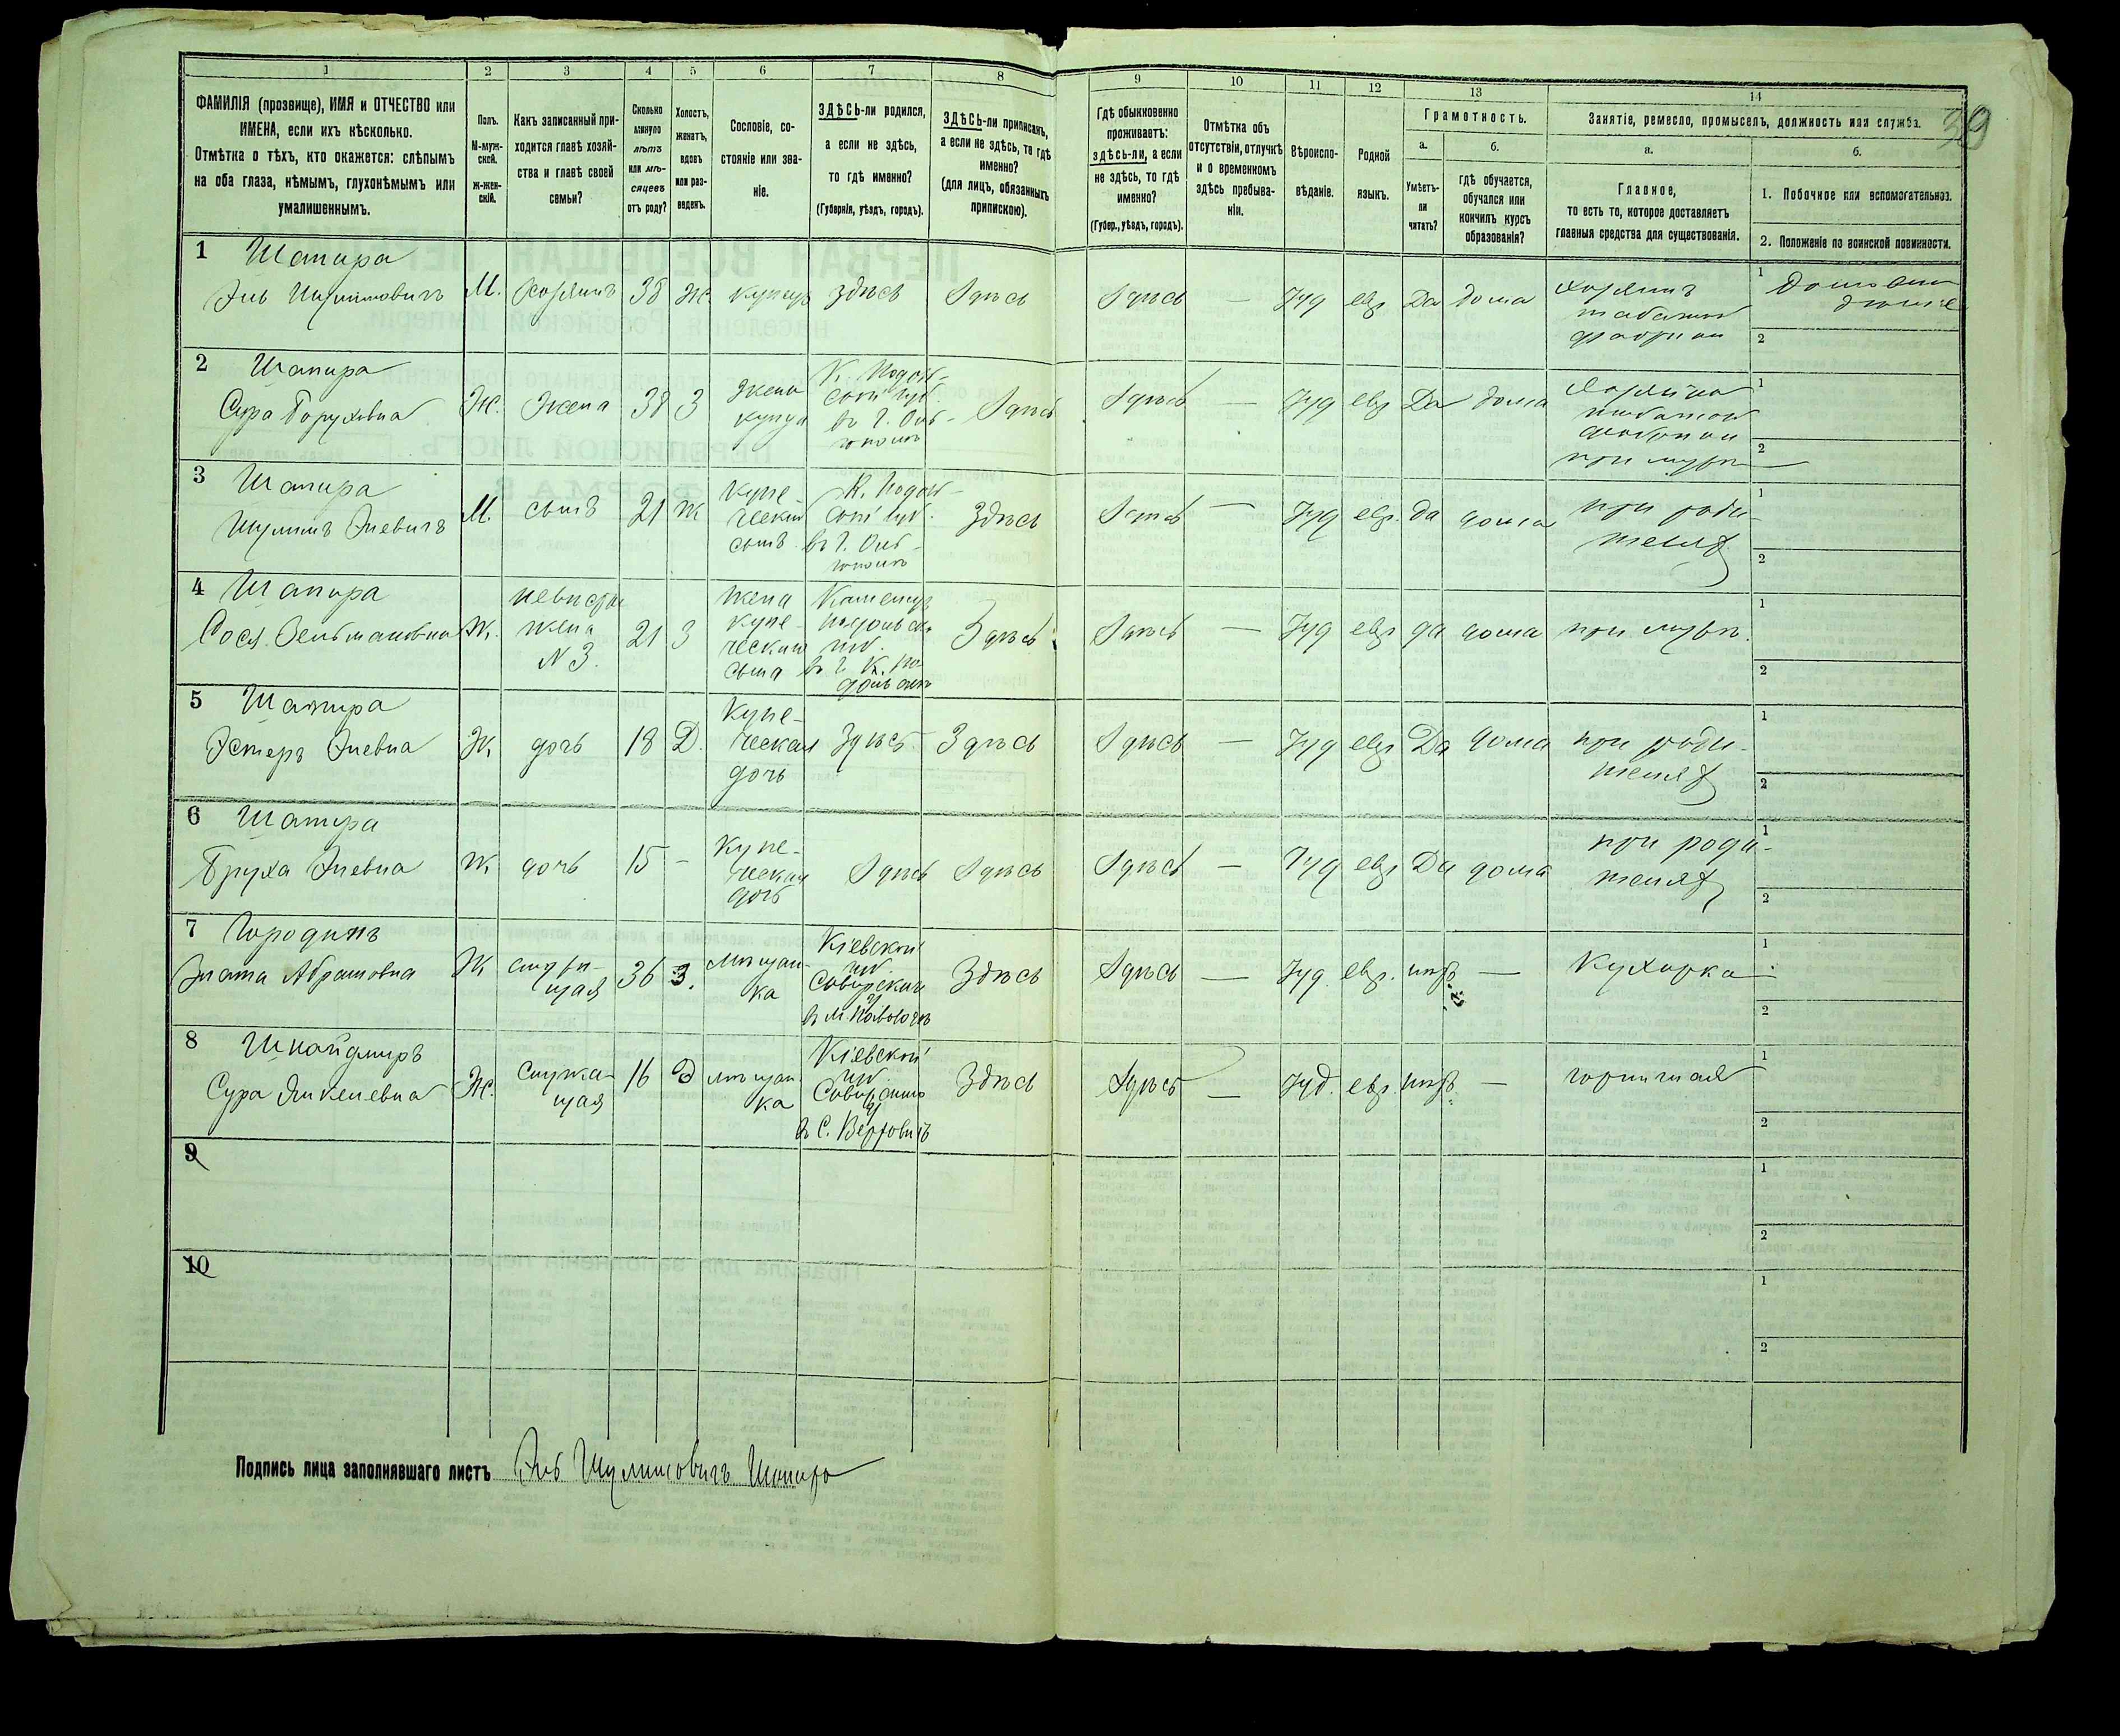 1 2 3 4 5 6 7 8 9 10 11 12 13 14
ФАМИЛІЯ (прозвище), ИМЯ и ОТЧЕСТВО или
ИМЕНА, если ихъ нѣсколько.
Отмѣтка о тѣхъ, кто окажется: слѣпымъ
на оба глаза, нѣмымъ, глухонѣмымъ или
умалишеннымъ.
Полъ.
М-муж-
ской.
ж-жен-
скій.
Какъ записанный при-
ходится главѣ хозяй-
ства и главѣ своей
семьи?
Сколько
минуло
лѣтъ
или мѣ-
сяцевъ
отъ роду?
Холостъ,
женатъ,
вдовъ
или раз-
веденъ.
Сословіе, со-
стояніе или зва-
ніе.
ЗДѢСЬ-ли родился,
а если не здѣсь,
то гдѣ именно?
(Губернія, уѣздъ, городъ).
ЗДѢСЬ-ли приписанъ,
а если не здѣсь, то гдѣ
именно?
(для лицъ, обязанныхъ
припискою).
Гдѣ обыкновенно
проживаетъ:
здѣсь-ли, а если
не здѣсь, то гдѣ
именно?
(Губер., уѣздъ, городъ).
Отмѣтка объ
отсутствіи, отлучкѣ
и о временномъ
здѣсь пребыва-
ніи.
Вѣроиспо-
вѣданіе.
Родной
языкъ.
Грамотность.
а.
Умѣетъ-
ли
читать?
б.
гдѣ обучается,
обучался или
кончилъ курсъ
образованія?
Занятіе, ремесло, промыселъ, должность или служба.
39
а.
Главное,
то есть то, которое доставляетъ
главныя средства для существованія.
б.
1. Побочное или вспомогательное.
2. Положеніе по воинской повинности.
1 Шапира
Эль Шулимовичъ М. хозяинъ 38 ж. купецъ здѣсь здѣсь здѣсь — Іуд евр Да дома
хозяинъ
табачной
фабрики
1
2
2 Шапира
Сура Боруховна Ж. жена 38 З
жена
купца
К. Подоль-
ской губ.
здѣсь здѣсь — Іуд евр Да дома
хозяйка
табачной
фабрики
при мужѣ
1
2
3 Шапира
Шулимъ Элевичъ М. сынъ 21 ж
купе-
ческій
сынъ
К. Подоль-
ской губ.
здѣсь здѣсь — Іуд евр. да дома
при роди-
теляхъ
1
2
4 Шапира
Сося Зельмановна Ж.
невистка
жена
N 3.
21 З
жена
купе-
ческаго
сына
Каменец
Подольско
губ.
в г. К. По
дольскѣ
Здѣсь здѣсь — Іуд евр да дома при мужѣ.
1
2
5 Шапира
Эстеръ Элевна Ж. дочь 18 Д.
Купе-
ческая
дочь
Здѣсь Здѣсь здѣсь — Іуд евр Да дома
при роди-
теляхъ
1
2
6 Шапира
Бруха Элевна Ж. дочь 15 -
Купе-
ческая
дочь
здѣсь здѣсь здѣсь — Іуд евр Да дома
при роди-
теляхъ
1
2
7 Городинъ
Злата Абрамовна Ж
служа-
щая
36 З.
мѣщан-
ка
Кіевской
губ.
Сквирскаго
у
в м. Паволочь
Здѣсь здѣсь — Іуд. евр. нѣтъ — Кухарка
1
2
8 Шнайдміръ
Сура Янкелевна Ж.
служа-
щая
16 Д
мѣщан
ка
Кіевской
губ.
Сквирскаго
у
в С.
Здѣсь здѣсь — Іуд. евр. нѣтъ — горничная
1
2
9
1
2
10
1
2
Подпись лица заполнявшаго листъ Эль Шулимовичъ Шапиро